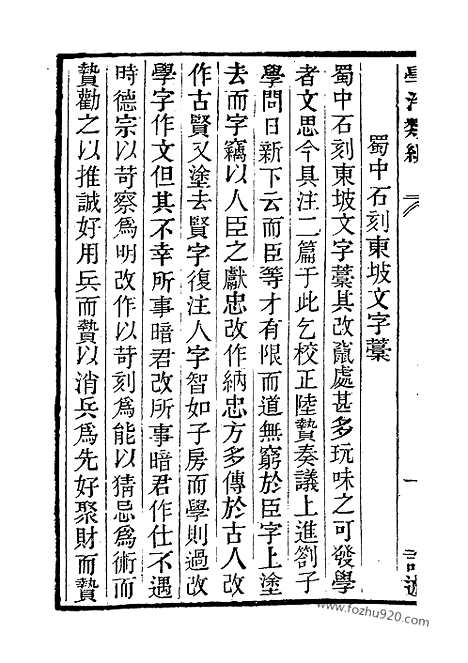 學海類編
一
蜀中石刻東坡文字藁
蜀中石刻東坡文字藁其改竄處甚多玩味之可發學
者文思今具注二篇于此乞校正陸贄奏議上進劄子
學問日新下云而臣等才有限而道無窮於臣字上塗
去而字竊以人臣之獻忠改作納忠方多傳於古人改
作古賢又塗去賢字復注人字智如子房而學則過改
學字作文但其不幸所事暗君改所事暗君作仕不遇
時德宗以苛察爲明改作以苛刻爲能以猜忌爲術而
贄勸之以推誠好用兵而贄以消兵爲先好聚財而贄
www.fozhu920.com